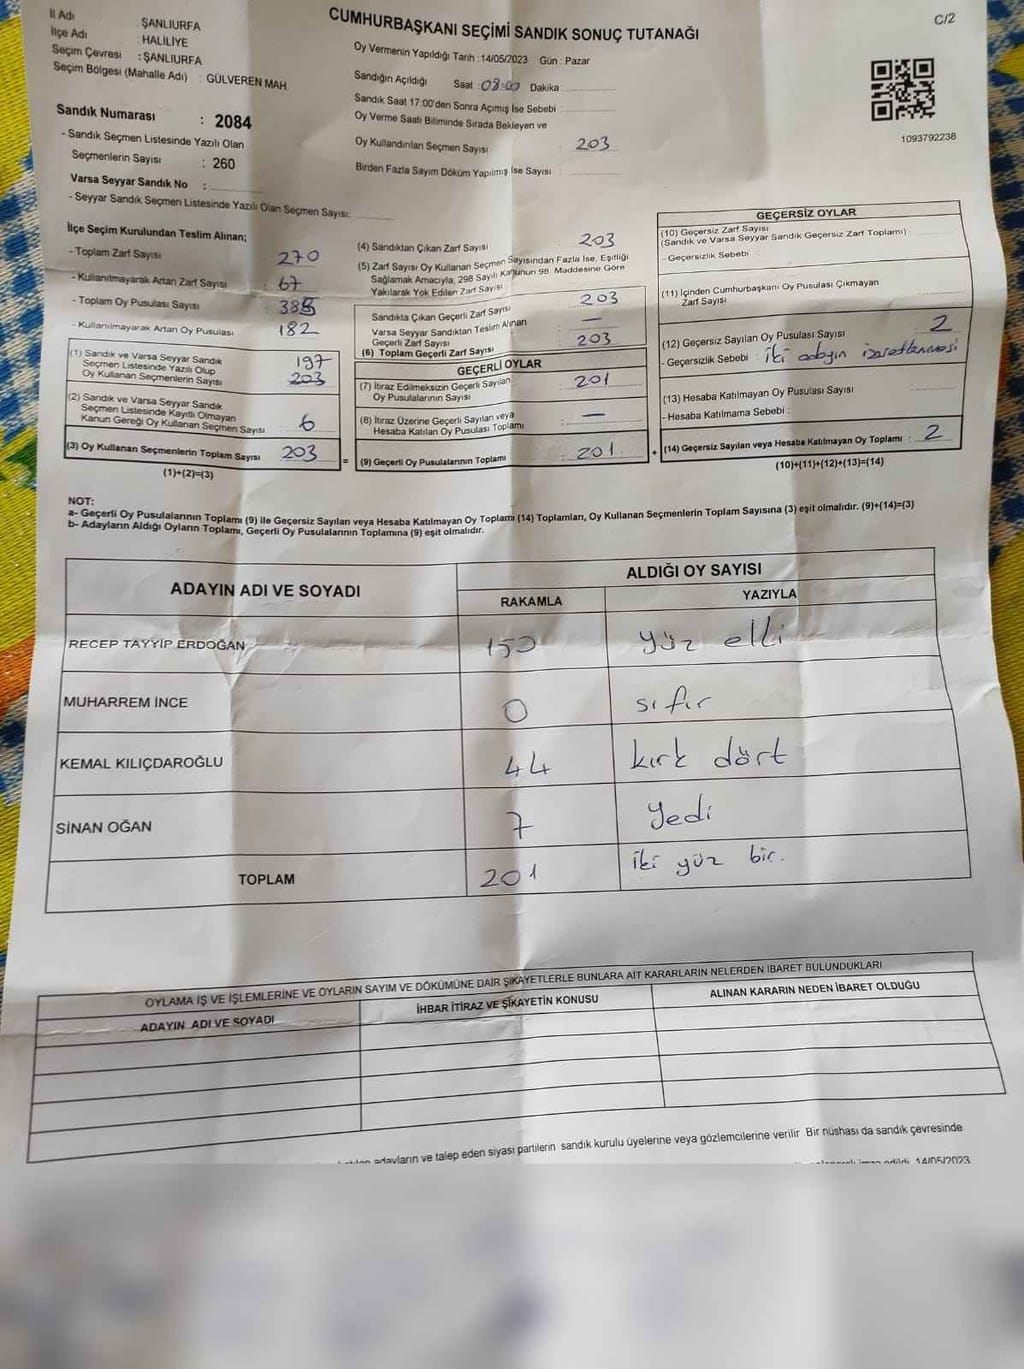 C/2
CUMHURBAŞKANI SEÇİMİ SANDIK SONUÇ TUTANAĞI
İl Adı : ŞANLIURFA
İlçe Adı : HALİLİYE
Seçim Çevresi : ŞANLIURFA
Seçim Bölgesi (Mahalle Adı) : GÜLVEREN MAH.
Oy Vermenin Yapıldığı Tarih : 14/05/2023 Gün : Pazar
Sandığın Açıldığı Saat : 08:00 Dakika :
Sandık Saat 17:00'den Sonra Açmış İse Sebebi :
Oy Verme Saati Bitiminde Sırada Bekleyen ve
Oy Kullandırılan Seçmen Sayısı : 203
Birden Fazla Sayım Döküm Yapılmış İse Sayısı :
1093792238
Sandık Numarası : 2084
- Sandık Seçmen Listesinde Yazılı Olan
Seçmenlerin Sayısı : 260
Varsa Seyyar Sandık No :
- Seyyar Sandık Seçmen Listesinde Yazılı Olan Seçmen Sayısı:
İlçe Seçim Kurulundan Teslim Alınan;
- Toplam Zarf Sayısı 270
- Kullanılmayarak Artan Zarf Sayısı : 67
- Toplam Oy Pusulası Sayısı : 385
- Kullanılmayarak Artan Oy Pusulası : 182
(1) Sandık ve Varsa Seyyar Sandık
Seçmen Listesinde Yazılı Olup
Oy Kullanan Seçmenlerin Sayısı 197
203
(2) Sandık ve Varsa Seyyar Sandık
Seçmen Listesinde Kayıtlı Olmayan
Kanun Gereği Oy Kullanan Seçmen Sayısı 6
(3) Oy Kullanan Seçmenlerin Toplam Sayısı 203
(1)+(2)=(3)
(4) Sandıktan Çıkan Zarf Sayısı 203
(5) Zarf Sayısı Oy Kullanan Seçmen Sayısından Fazla İse, Eşitliği
Sağlamak Amacıyla, 298 Sayılı Kanunun 98. Maddesine Göre
Yakılarak Yok Edilen Zarf Sayısı :
Sandıkta Çıkan Geçerli Zarf Sayısı 203
Varsa Seyyar Sandıktan Teslim Alınan
Geçerli Zarf Sayısı —
(6) Toplam Geçerli Zarf Sayısı 203
GEÇERLİ OYLAR
(7) İtiraz Edilmeksizin Geçerli Sayılan
Oy Pusulalarının Sayısı : 201
(8) İtiraz Üzerine Geçerli Sayılan veya
Hesaba Katılan Oy Pusulası Toplamı : —
= (9) Geçerli Oy Pusulalarının Toplamı : 201
GEÇERSİZ OYLAR
(10) Geçersiz Zarf Sayısı
(Sandık ve Varsa Seyyar Sandık Geçersiz Zarf Toplamı)
- Geçersizlik Sebebi :
(11) İçinden Cumhurbaşkanı Oy Pusulası Çıkmayan
Zarf Sayısı
(12) Geçersiz Sayılan Oy Pusulası Sayısı : 2
- Geçersizlik Sebebi : İki adayın işaretlenmesi
(13) Hesaba Katılmayan Oy Pusulası Sayısı
- Hesaba Katılmama Sebebi :
+ (14) Geçersiz Sayılan veya Hesaba Katılmayan Oy Toplamı : 2
(10)+(11)+(12)+(13)=(14)
NOT:
a- Geçerli Oy Pusulalarının Toplamı (9) ile Geçersiz Sayılan veya Hesaba Katılmayan Oy Toplamı (14) Toplamları, Oy Kullanan Seçmenlerin Toplam Sayısına (3) eşit olmalıdır. (9)+(14)=(3)
b- Adayların Aldığı Oyların Toplamı, Geçerli Oy Pusulalarının Toplamına (9) eşit olmalıdır.
ADAYIN ADI VE SOYADI ALDIĞI OY SAYISI
RAKAMLA YAZIYLA
RECEP TAYYİP ERDOĞAN 150 yüz elli
MUHARREM İNCE 0 sıfır
KEMAL KILIÇDAROĞLU 44 kırk dört
SİNAN OĞAN 7 yedi
TOPLAM 201 iki yüz bir.
OYLAMA İŞ VE İŞLEMLERİNE VE OYLARIN SAYIM VE DÖKÜMÜNE DAİR ŞİKAYETLERLE BUNLARA AİT KARARLARIN NELERDEN İBARET BULUNDUKLARI
ADAYIN ADI VE SOYADI İHBAR İTİRAZ VE ŞİKAYETİN KONUSU ALINAN KARARIN NEDEN İBARET OLDUĞU
adayların ve talep eden siyasi partilerin sandık kurulu üyelerine veya gözlemcilerine verilir Bir nüshası da sandık çevresinde
14/05/2023